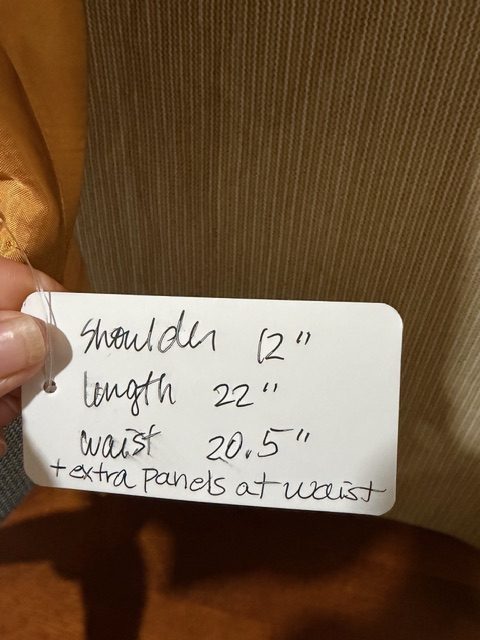 shoulder 12"
length 22"
waist 20.5"
+ extra panels at waist